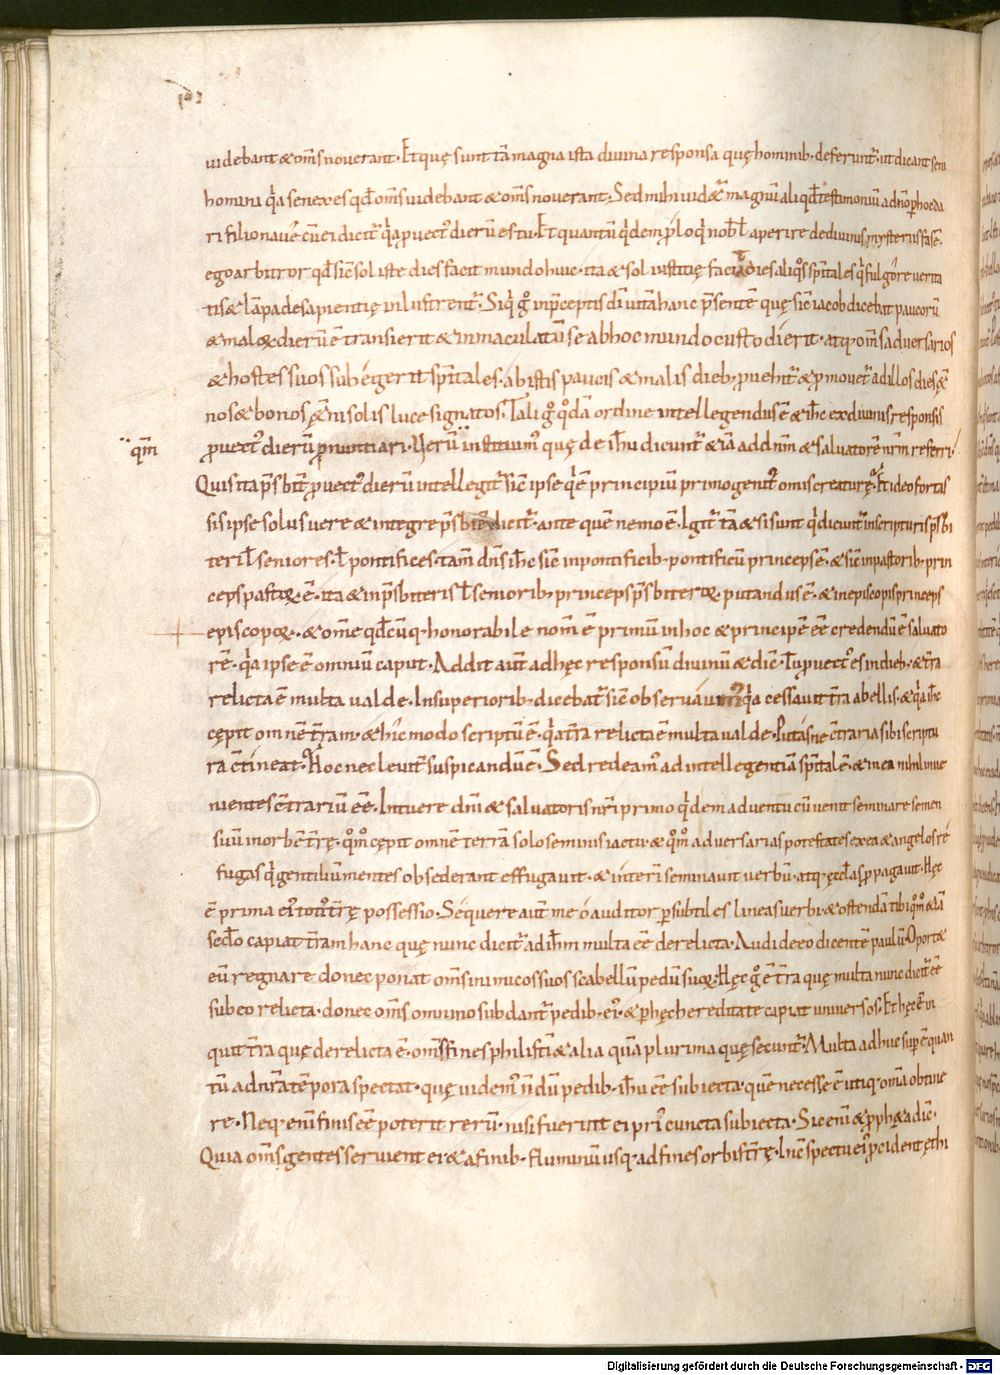 uidebant & om̄s nouerant. Et quę sunt tā magna ista diuina responsa quę hominib· deferunt̄· ut dicant seni
homini q̇a senex es qđ om̄s uidebant & om̄s nouerant. Sed mihi uidet̄ magnū aliqđ testimonium ad
ri filio naue cū ei dicit̄ q̇a ꝓuect᷒ dierū es tu. Et quantū q̇dem ꝓ loq̇ nob̄ aperire de diuinis mysteriis
ego arbitror qđ sic̄ sol iste dies facit mundo huic· ita & sol iustitię facit dies aliq̊s sp̄itales q̇ fulgore uerita
tis & lāpade sapientię inlustrent̄. Siq̇ g̊ in p̄ceptis dī uitā hanc p̄sentē quę sic̄ iacob dicebat paucorū
& malorꝝ dierū ē transierit & inmaculatū se ab hoc mundo custodierit· atq· om̄s aduersarios
& hostes suos subegerit sp̄itales· ab istis paucis & malis dieb· ꝓuehit̄ & ꝓmouet̄ ad illos dies
nos & bonos & solis luce signatos. Tali g̊ q̊dā ordine intellegendus ē & ih̄c ex diuinis responsis
ꝓuect᷒ dierū pronuntiari. Uerū institim᷒ quę de ih̄u dicunt̄ &iā ad dn̄m & saluatorē nr̄m referri.
qm̄
Quis ita p̄sbit̄ ꝓuect᷒ dierū intellegit̄ sic̄ ipse q̇ ē principiū primogenit᷒ omīs creaturę. Et ideo fortas
sis ipse solus uere & integre p̄sbit̄ dicit̄· ante quē nemo ē. Igit̄ tā & si sunt q̇ dicunt̄ in scripturis p̄sbi
teri ł seniores· ł pontifices· tam̄ dn̄s ih̄c sic̄ in pontificib· pontificū princeps ē· & sic̄ in pastorib· prin
ceps pastorꝝ ē· ita & in p̄sbiteris ł seniorib· princeps p̄sbiterorꝝ putandus ē· & in episcopis princeps
episcoporꝝ· & om̄e qđcūq· honorabile nom̄ ē primū in hoc & principē eē credendū ē saluato
rē· q̇a ipse ē omniū caput. Addit aut̄ ad hęc responsū diuinū & dic̄· Tu ꝓuect᷒ es in dieb· & t̄ra
relicta ē multa ualde. In superiorib· dicebat̄ sic̄ obseruauim᷒ q̇a cessauit t̄ra a bellis· & q̇a ih̄c
cępit omnē t̄ram· & hic̄ modo scriptū ē q̇a t̄ra relicta ē multa ualde. Putasne c̄traria sibi scriptu
ra c̄tineat. Hoc nec leuit̄ suspicandū ē. Sed redeam᷒ ad intellegentiā sp̄italē· & in ea nihil inue
nientes c̄trariū eē. Intuere dn̄i & saluatoris nr̄i primo q̇dem aduentū cū uenit seminare semen
suū in orbē t̄rę· q̊m̊ cępit omnē terrā solo seminis iactu· & q̊m̊ aduersarias potestates ex ea & angelos re
fugas q̇ gentiliū mentes obsederant effugauit· & interī seminauit uerbū· atq· ęcclas ꝓpagauit. Hęc
ē prima ei᷒ toti᷒ t̄rę possessio. Sequere aut̄ me o auditor per subtiles lineas uerbi· & ostendā tibi q̊m̊ &iā
secđo capiat t̄ram hanc quę nunc dicit̄ ad ih̄m multa eē derelicta. Audi de eo dicentē paulū. Oport&
eū regnare donec ponat om̄s inimicos suos scabellū pedū suorꝝ. Hęc g̊ ē t̄ra quę multa nunc dicit̄ eē
sub eo relicta· donec om̄s omnino subdant̄ pedib· ei᷒· & ꝑ hęc hereditate capiat uniuersos. Et hęc ē in
quit t̄ra quę derelicta ē· om̄s fines philistī & alia quā plurima quę secunt̄. Multa adhuc sup̄ ē quan
tū ad nr̄a tēpora spectat· quę uidem᷒ n̄dū pedib· ih̄u eē subiecta· quē necesse ē utiq· om̄ia obtine
re. Neq· enī finis eē poterit rerū· nisi fuerint ei pri᷒ cuncta subiecta. Sic enī & ꝓph&a dic̄·
Quia om̄s gentes seruient ei & a finib· fluminū usq· ad fines orbis t̄rę. In c̄spectu ei᷒ ꝓcident ęthi